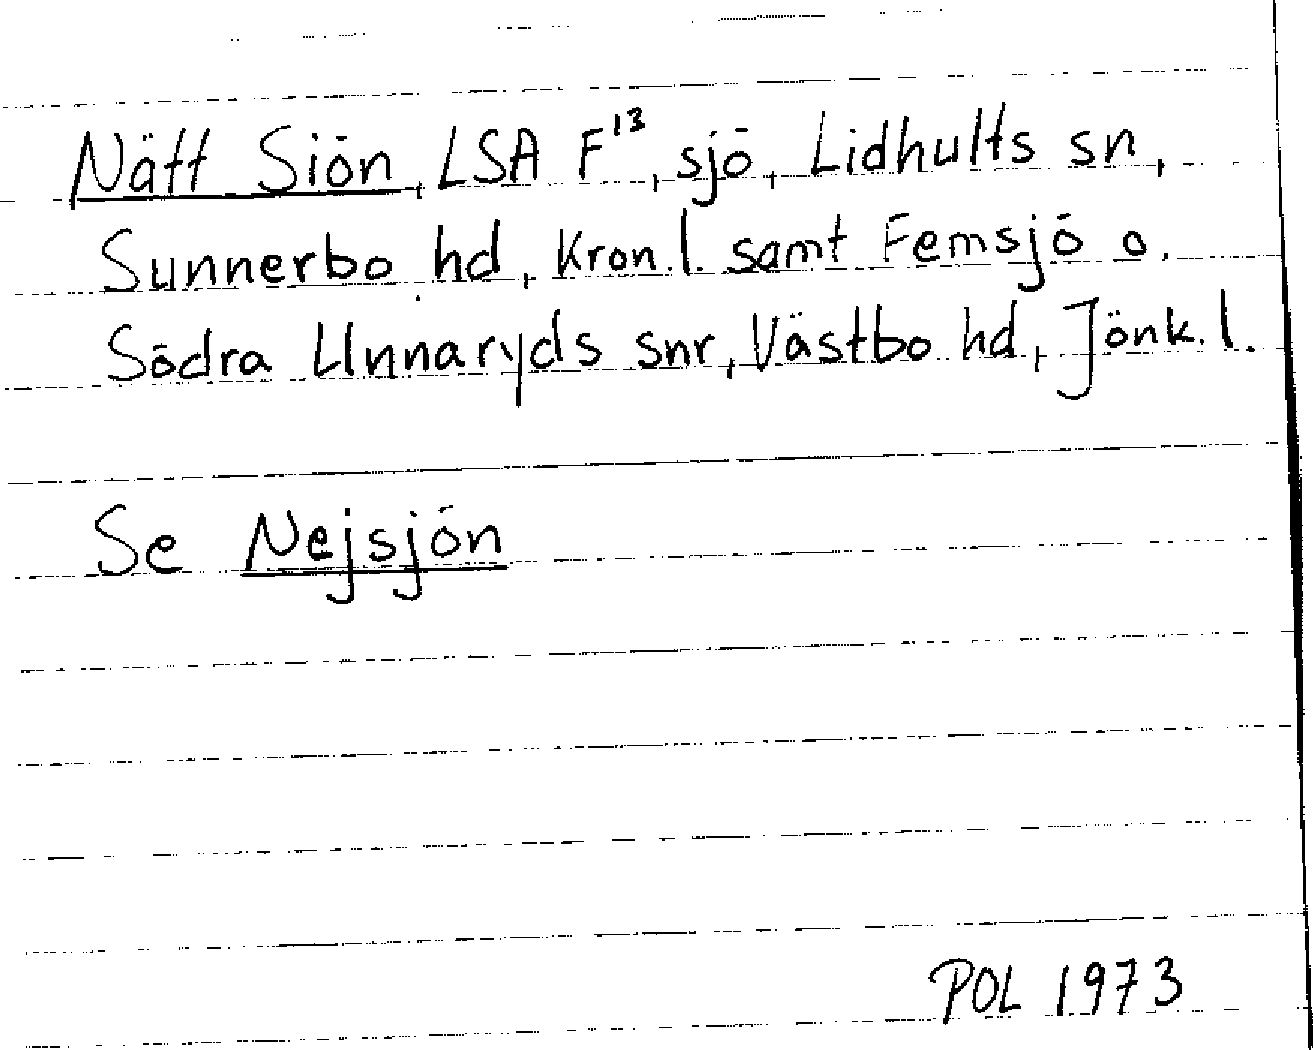 Nätt Siön, LSA F¹³, sjö, Lidhults sn,
Sunnerbo hd, Kron.l. samt Femsjö o.
Södra Unnaryds snr, Västbo hd, Jönk.l.
Se Nejsjön
POL 1973